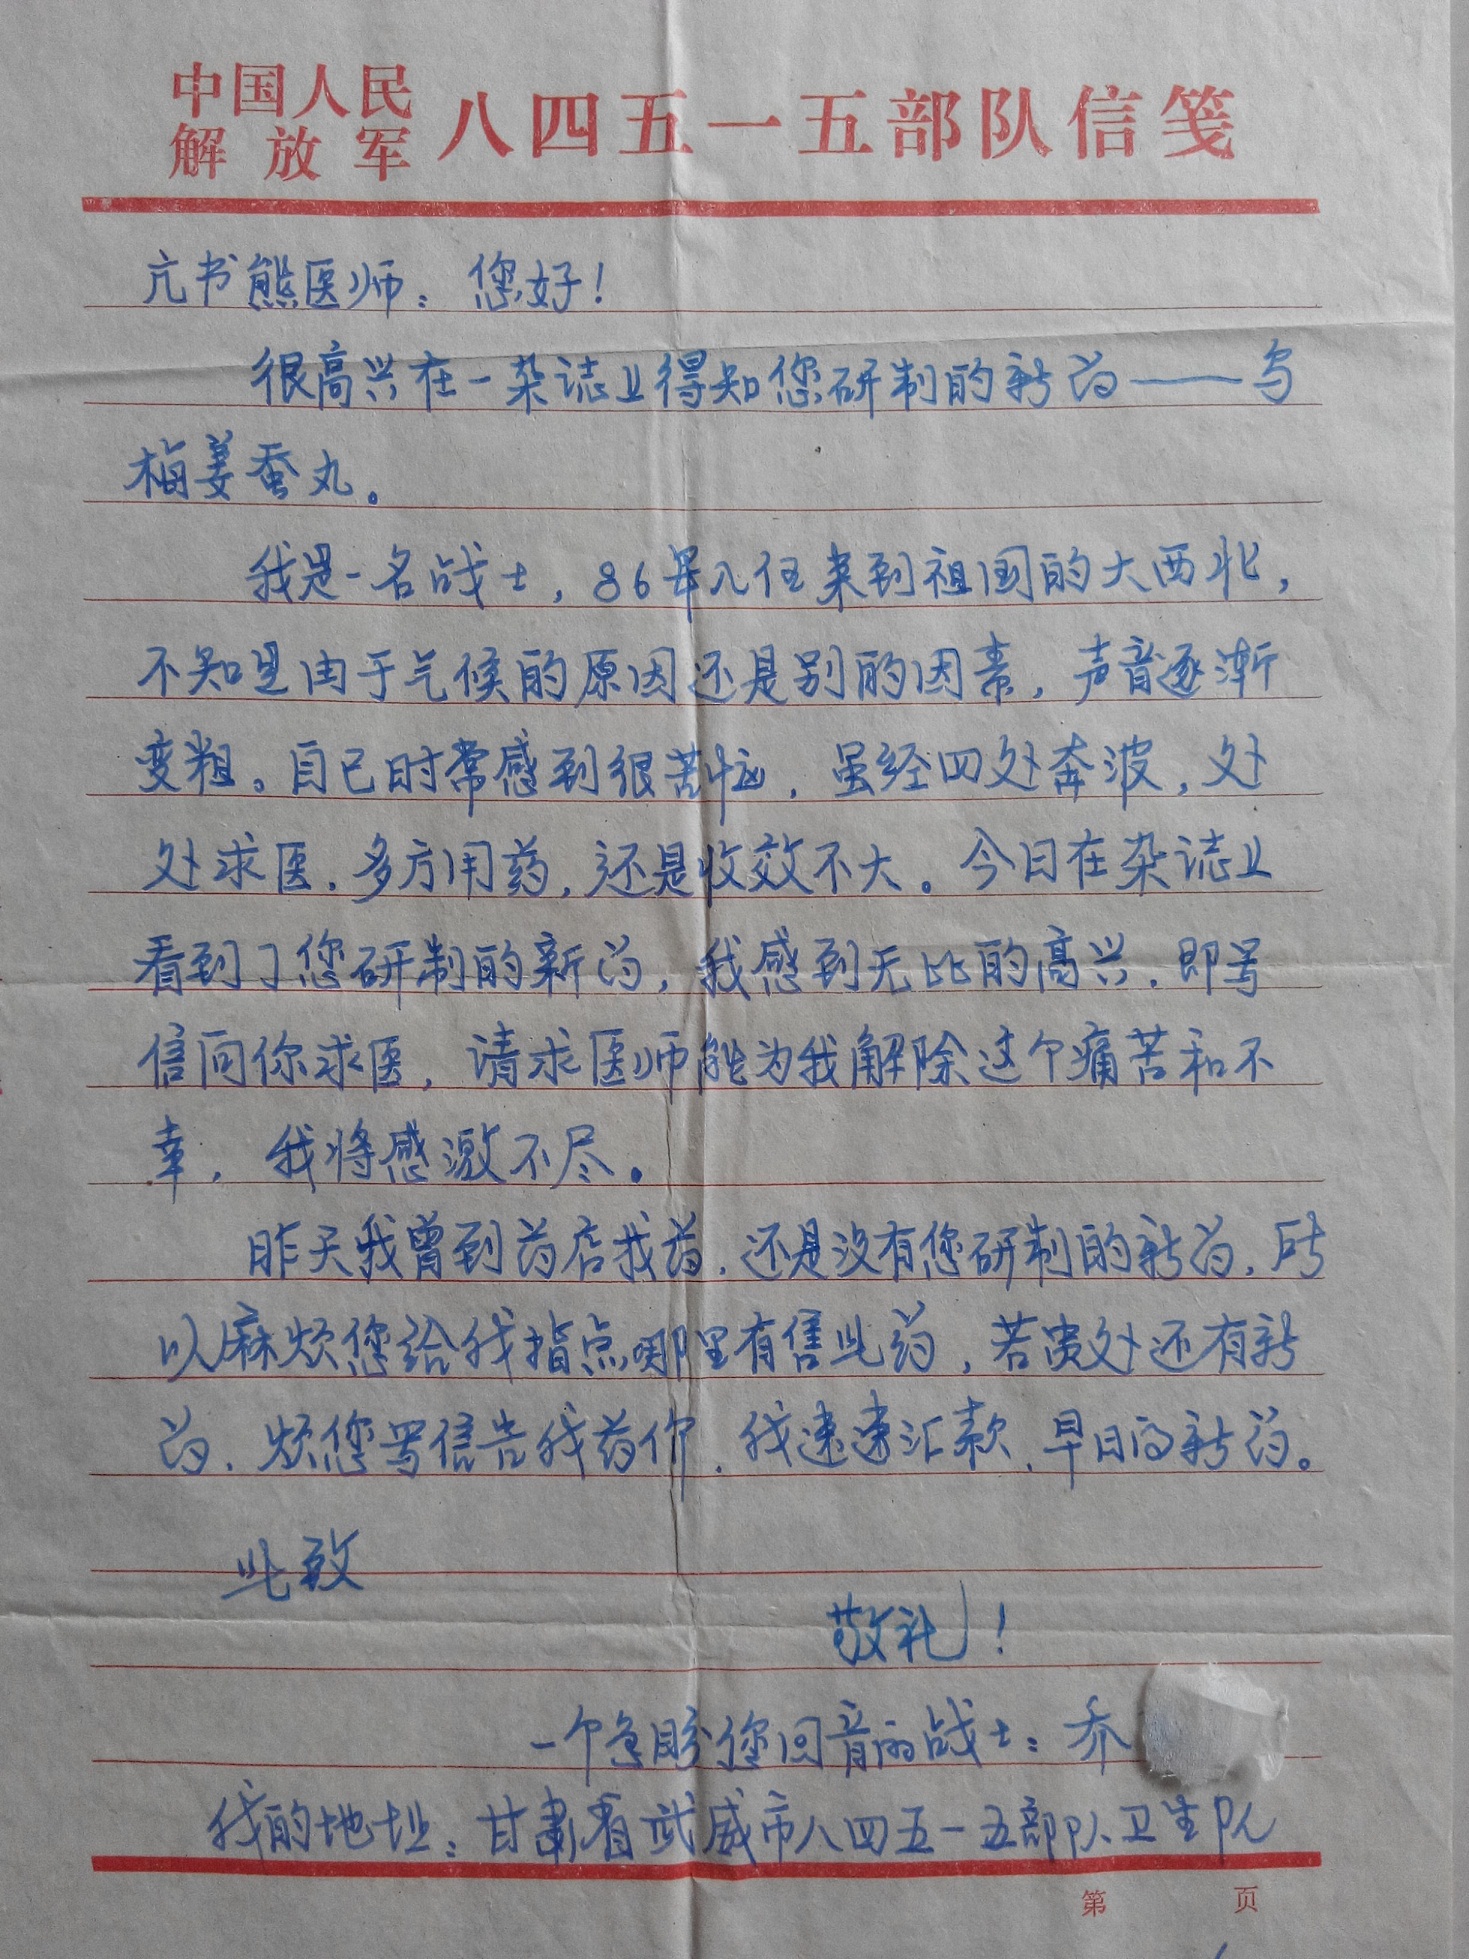 中国人民
解放军 八四五一五部队信笺
亢书熊医师：您好！
很高兴在一杂誌上得知您研制的新药——乌
梅姜蚕丸。
我是一名战士，86年入伍来到祖国的大西北，
不知是由于气候的原因还是别的因素，声音逐渐
变粗。自己时常感到很苦恼，虽经四处奔波，处
处求医，多方用药，还是收效不大。今日在杂誌上
看到了您研制的新药，我感到无比的高兴，即写
信向你求医，请求医师能为我解除这个痛苦和不
幸，我将感激不尽。
昨天我曾到药店找药，还是没有您研制的新药，所
以麻烦您给我指点哪里有售此药，若贵处还有新
药，烦您写信告我药价，我速速汇款，早日的新药。
此致
敬礼！
一个急盼您回音的战士：乔
我的地址：甘肃省武威市八四五一五部队卫生队
第 页